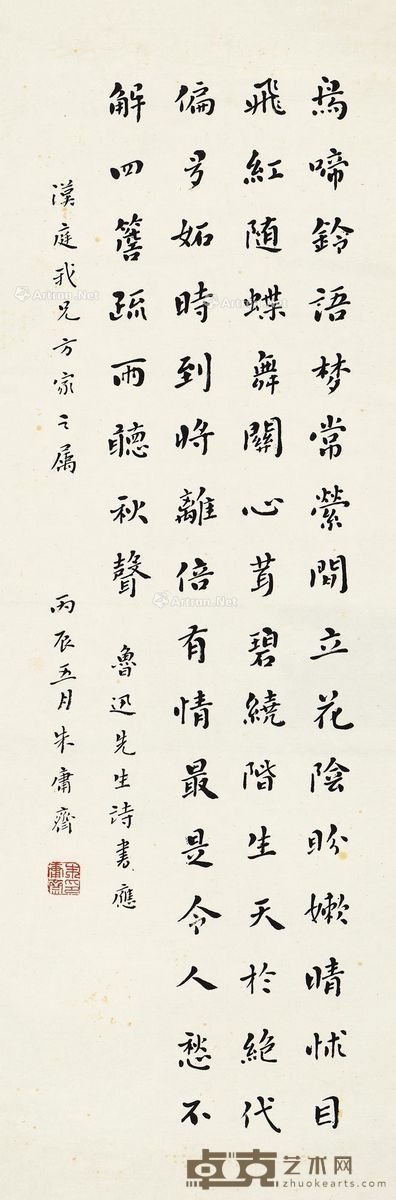 鶯啼鈴語梦常縈閒立花陰盼嫩晴怵目
飛紅随蝶舞關心茸碧繞階生天於絶代
偏多妬時到将離倍有情最是令人愁不
解四簷疏雨聽秋聲
魯迅先生詩書應
漢庭我兄方家之属
丙辰五月朱庸齋
朱印庸齋
卓克艺术网
zhuokearts.com
Artron.Net
Artron.Net
Artron.Net